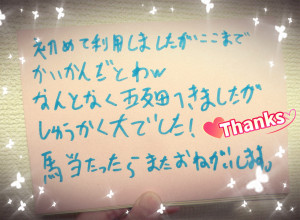 初めて利用しましたがここまで
かいかんだとわw
なんとなく五反田つきましたが
しゅうかく大でした!
Thanks
馬当たったらまたおねがいします。